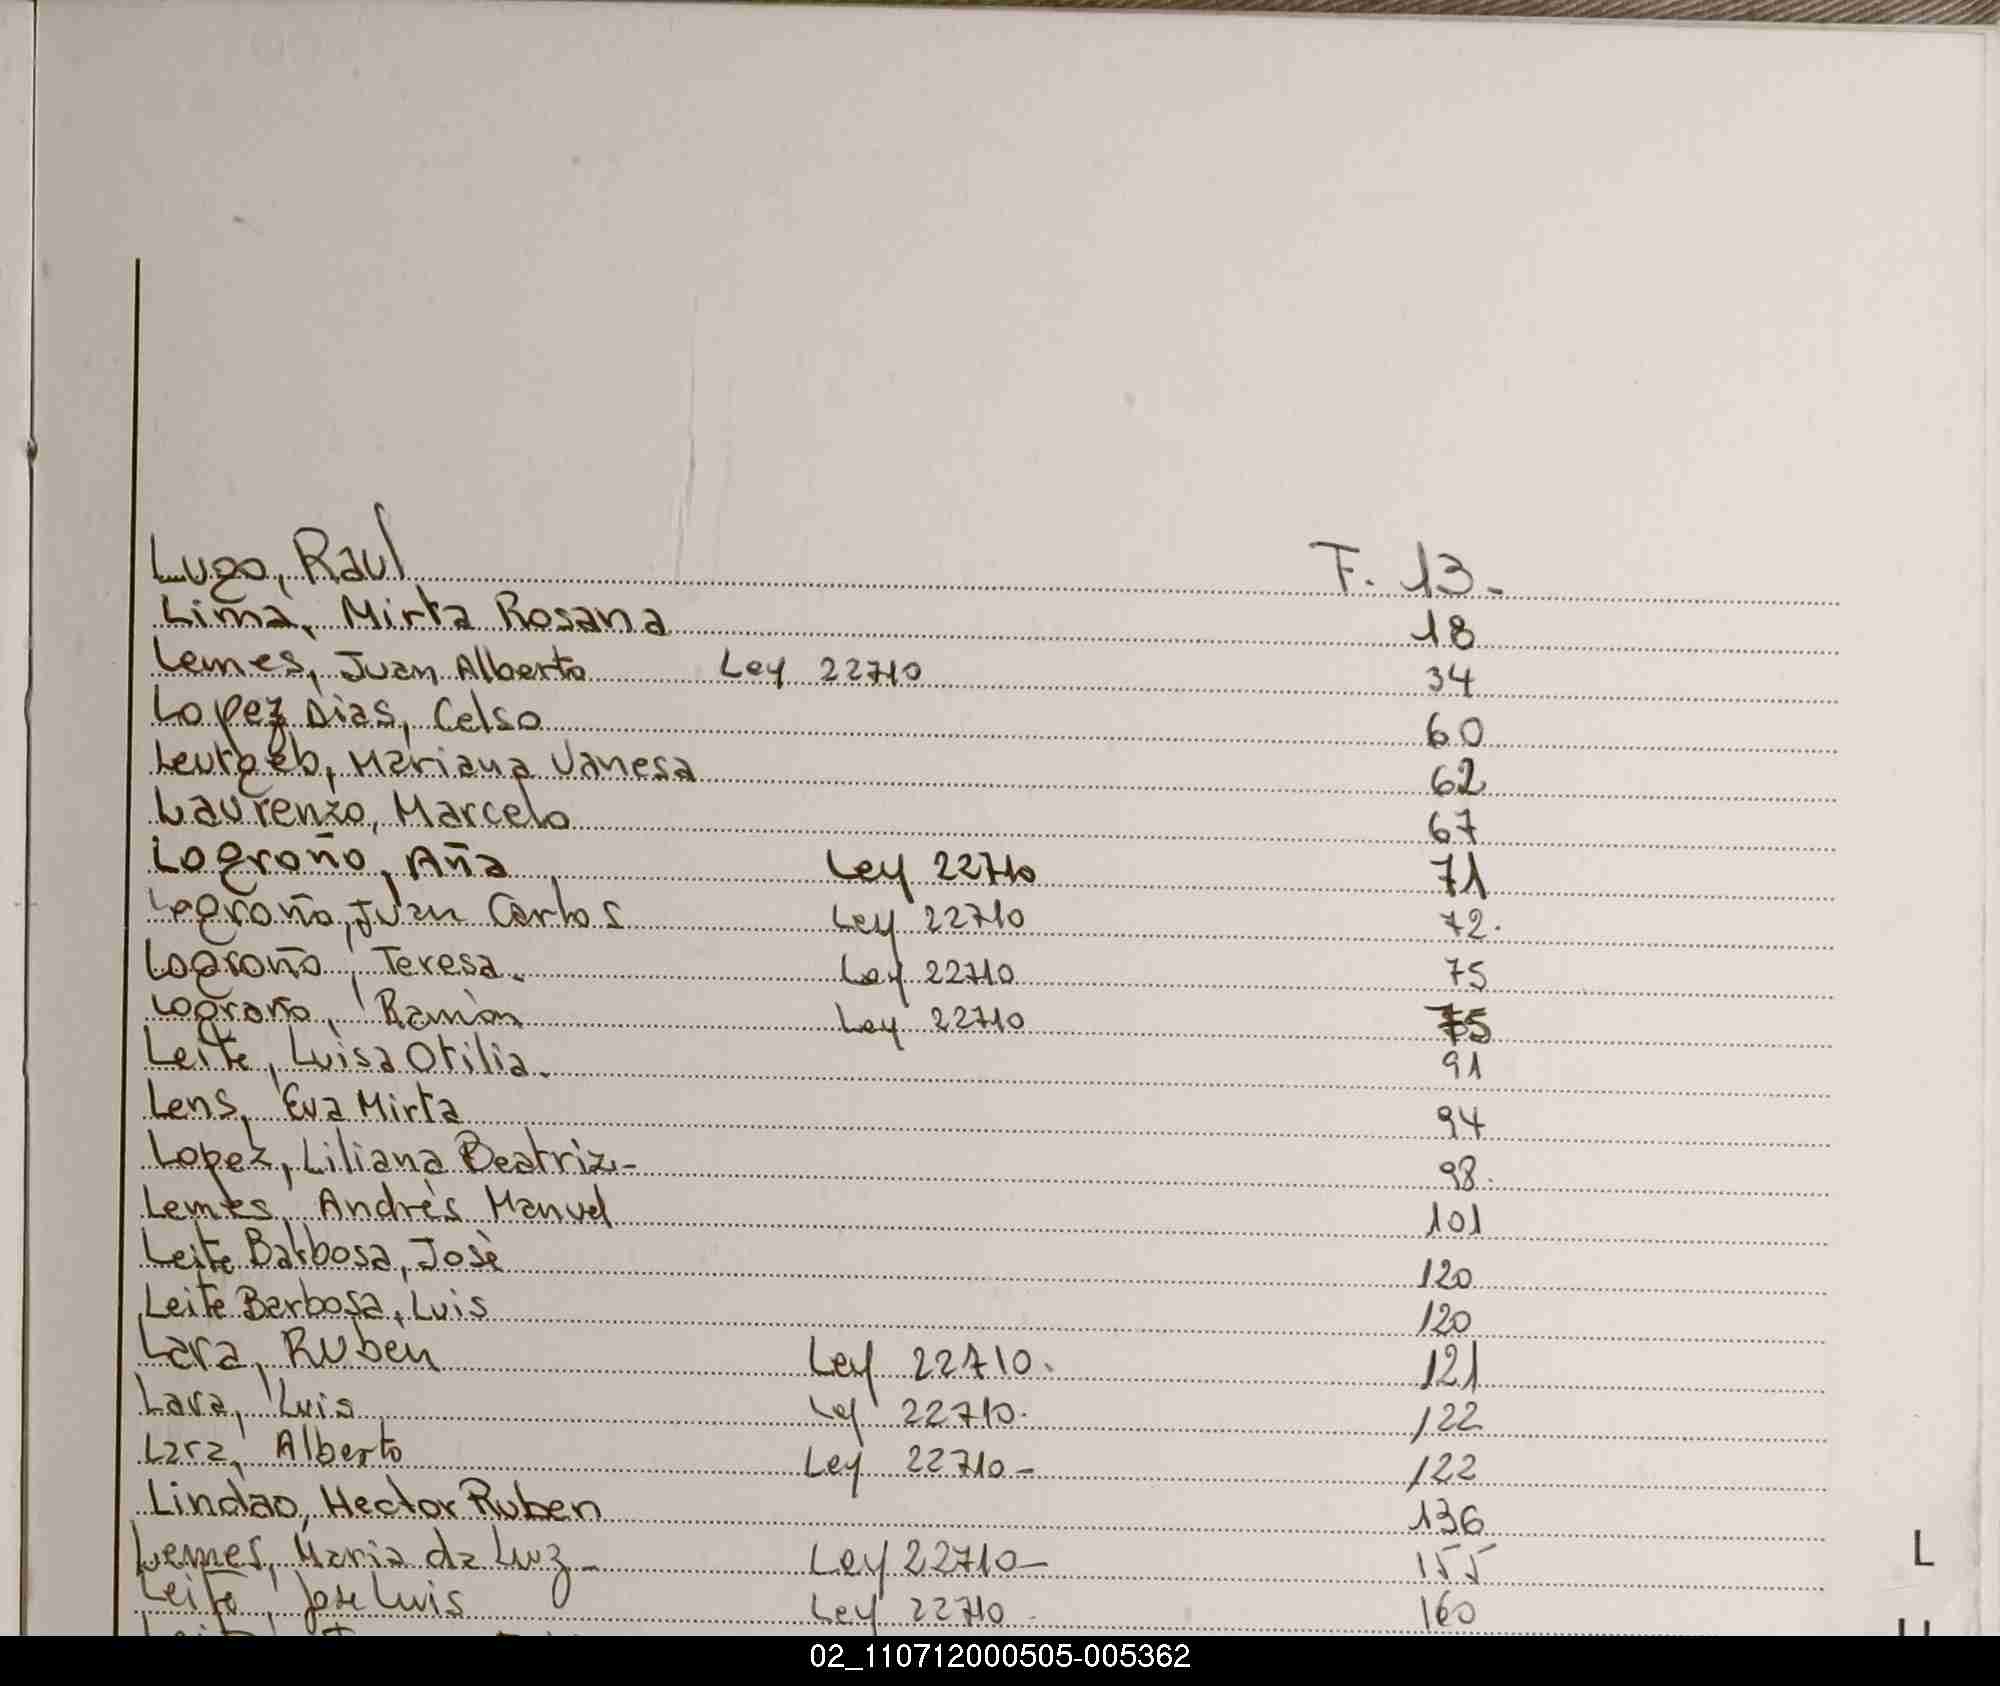 Lugo, Raul F. 13-
Lima, Mirta Rosana 18
Lemes, Juan Alberto Ley 22710 34
Lopez Dias, Celso 60
Leurgeb, Mariana Vanesa 62
Laurenzo, Marcelo 67
Logroño, Aña Ley 22710 71
Logroño, Juan Carlos Ley 22710 72.
Logroño, Teresa. Ley 22710 75
Logroño, Ramòn Ley 22710 75
Leite, Luisa Otilia. 91
Lens, Eva Mirta 94
Lopez, Liliana Beatriz.- 98.
Lemes, Andrès Manuel 101
Leite Barbosa, Josè 120
Leite Barbosa, Luis 120
Lara, Ruben Ley 22710. 121
Lara, Luis Ley 22710. 122
Lara, Alberto Ley 22710- 122
Lindao, Hector Ruben 136
Lemes, Maria da Luz- Ley 22710- 155
L
Leite, Jose Luis Ley 22710. 160
02_110712000505-005362